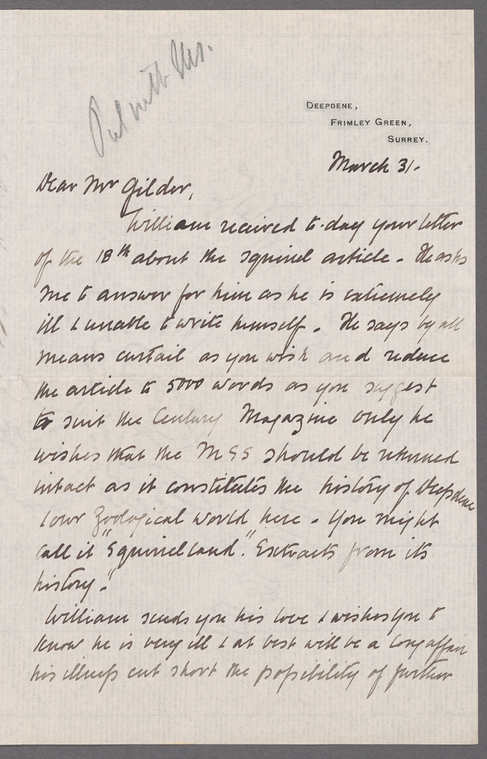 Put with Ms.
DEEPDENE,
FRIMLEY GREEN,
SURREY.
March 31.
Dear Mr Gilder,
William received to-day your letter
of the 18th about the squirrel article - He asks
me to answer for him as he is extremely
ill & unable to write himself. He says by all
means curtail as you wish and reduce
the article to 5000 words as you suggest
to suit the Century Magazine only he
wishes that the MSS should be returned
intact as it constitutes the history of Deepdene
& our Zoological world here - You might
call it "Squirrel land." Extracts from its
history."
William sends you his love & wishes you to
know he is very ill & at best will be a long affair
his illness cut short the possibility of further